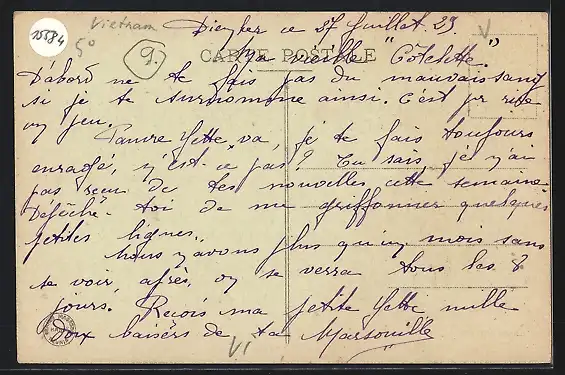 15584
Vietnam
5°
9.
V
Dieglez ce 27 Juillet 29.
CARTE POSTALE
Ma vieille "Côtelette".
D'abord ne te fais pas du mauvais sang
si je te surnomme ainsi. C'est pr rire
un peu.
Pauvre Yette, va, je te fais toujours
enragé, n'est-ce pas? Tu sais, je n'ai
pas reçu de tes nouvelles cette semaine.
Dépêche-toi de me griffonner quelques
petites lignes.
Nous n'avons plus qu'un mois sans
se voir, après, on se verra tous les 8
jours. Reçois ma petite Yette mille
doux baisers de ta Marsouille
VI